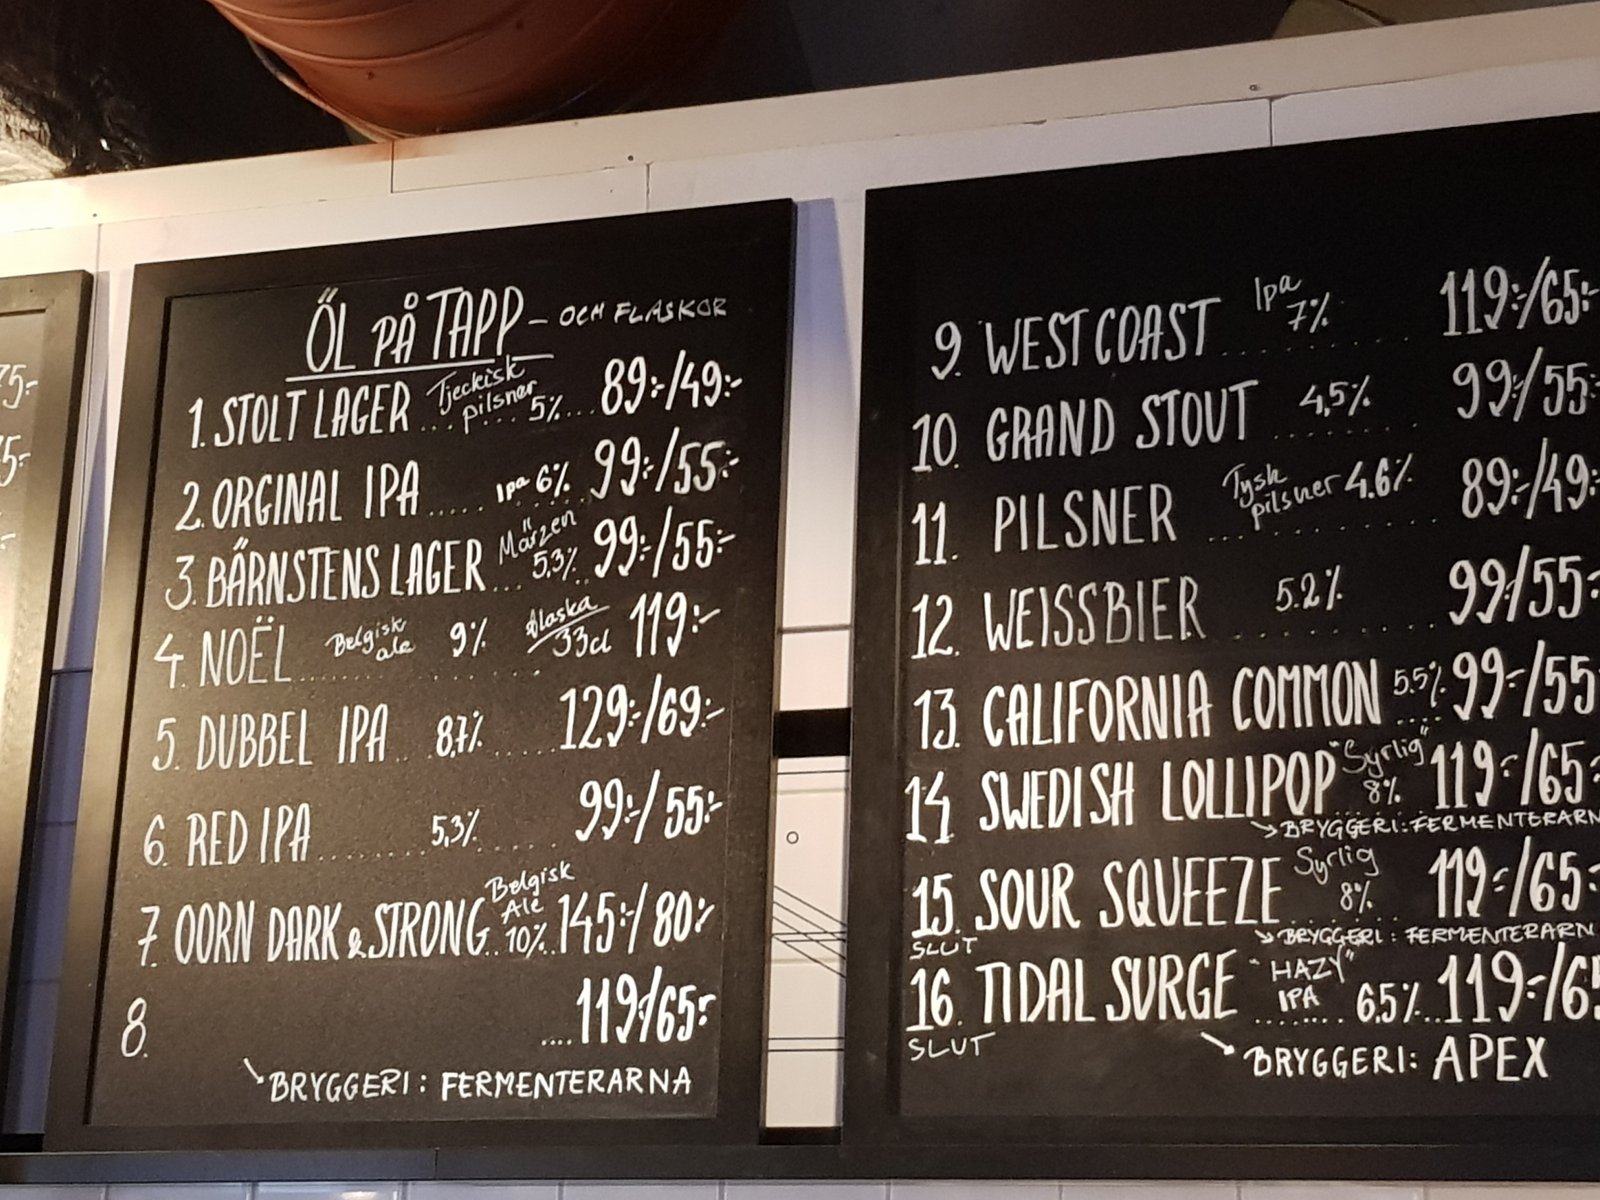 75:-
5:-
ÖL PÅ TAPP - OCH FLASKOR
1. STOLT LAGER Tjeckisk pilsner 5% 89:-/49:-
2. ORGINAL IPA ..... Ipa 6% 99:-/55:-
3. BÄRNSTENS LAGER ... Märzen 5.3% 99:-/55:-
4. NOËL Belgisk ale 9% Alaska 33cl 119:-
5. DUBBEL IPA .. 8,7% ..... 129:-/69:-
6. RED IPA ........ 5,3% ...... 99:-/55:-
7. OORN DARK & STRONG .. Belgisk Ale 10% .. 145:-/80:-
8. .... 119:-/65:-
BRYGGERI: FERMENTERARNA
9. WEST COAST Ipa 7% 119:-/65:-
10. GRAND STOUT 4,5% 99/55:-
11. PILSNER Tysk pilsner 4.6% 89:-/49:-
12. WEISSBIER 5.2% 99/55:-
13. CALIFORNIA COMMON 5.5% 99:-/55
14. SWEDISH LOLLIPOP "Syrlig" 8% 119:-/65:-
BRYGGERI: FERMENTERARN
15. SOUR SQUEEZE Syrlig 8% 119:-/65:-
SLUT BRYGGERI: FERMENTERARN
16. TIDAL SURGE "HAZY" IPA 6,5% .. 119:-/65
SLUT BRYGGERI: APEX